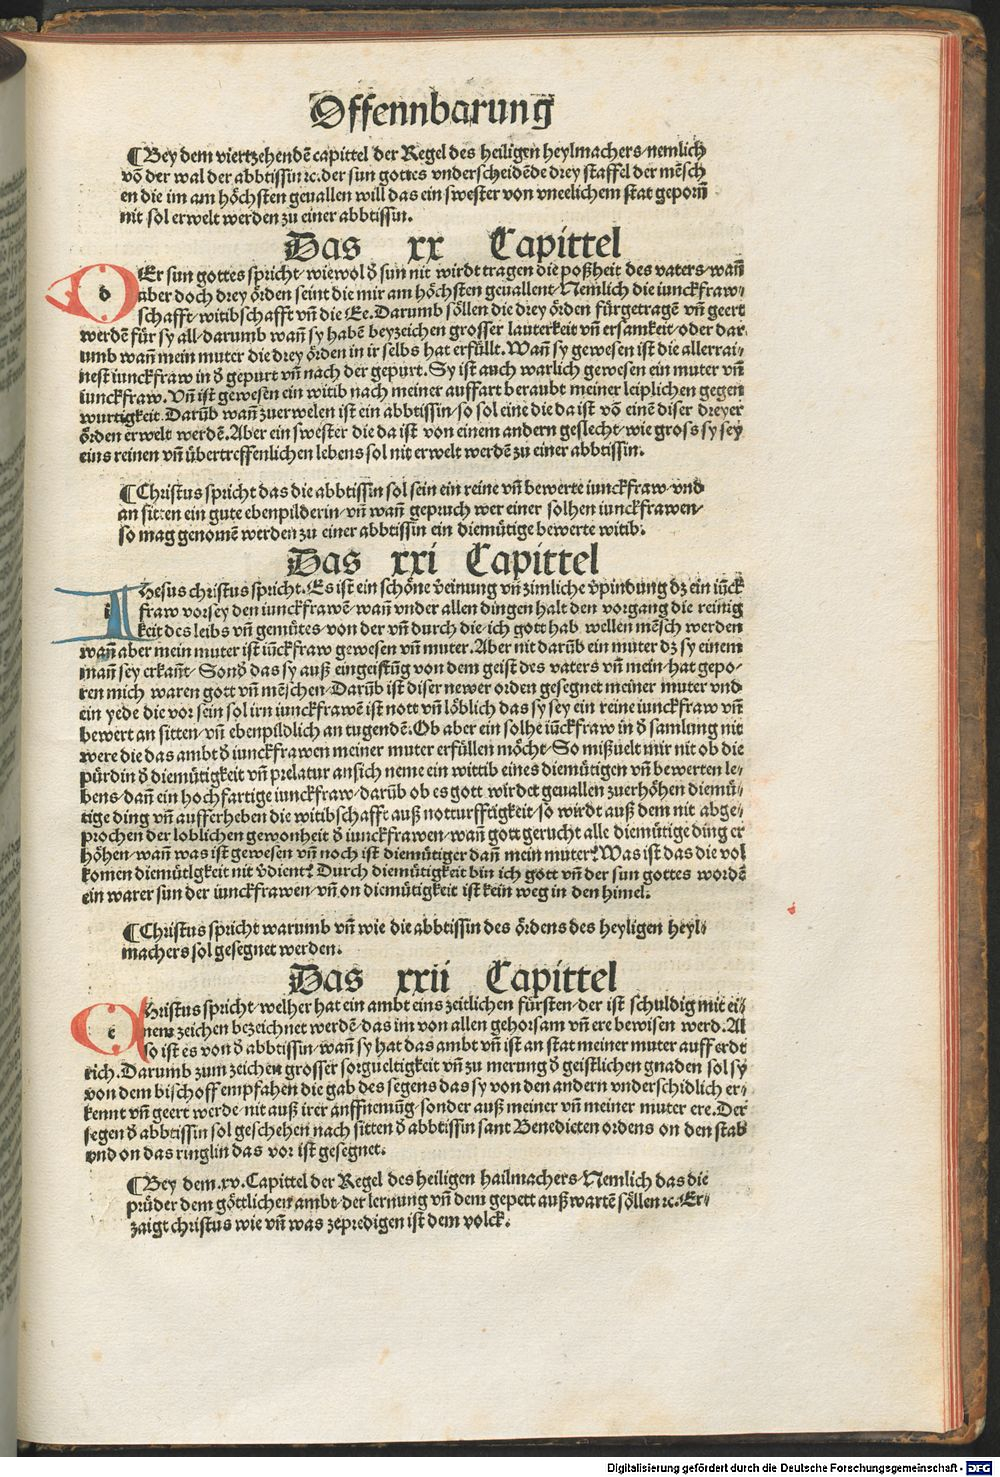 Offennbarung
¶Bey dem viertzehendē capittel der Regel des heiligen heylmachers/nemlich
vō der wal der abbtissin ꝛc.der sun gottes vnderscheidēde drey staffel der mēsch
en die im am höchsten geuallen will das ein swester von vneelichem stat geporn̄
nit sol erwelt werden zu einer abbtissin.
Das xx Capittel
dEr sun gottes spricht/wiewol d̄ sun nit wirdt tragen die poßheit des vaters/wan̄
aber doch drey örden seint die mir am höchsten geuallent/Nemlich die iunckfraw⸗
schafft/witibschafft vn̄ die Ee.Darumb söllen die drey örden fürgetragē vn̄ geert
werdē für sy all/darumb wan̄ sy habē beyzeichen grosser lauterkeit vn̄ ersamkeit/oder dar
umb wan̄ mein muter die drey örden in ir selbs hat erfüllt.Wan̄ sy gewesen ist die allerrai⸗
nest iunckfraw in d̄ gepurt vn̄ nach der gepurt.Sy ist auch warlich gewesen ein muter vn̄
iunckfraw.Vn̄ ist gewesen ein witib nach meiner auffart beraubt meiner leiplichen gegen
wurtigkeit.Darūb wan̄ zuerwelen ist ein abbtissin/so sol eine die da ist vō einē diser dreyer
örden erwelt werdē.Aber ein swester die da ist von einem andern geslecht/wie gross sy sey
eins reinen vn̄ übertreffenlichen lebens sol nit erwelt werdē zu einer abbtissin.
¶Christus spricht das die abbtissin sol sein ein reine vn̄ bewerte iunckfraw/vnd
an sitten ein gute ebenpilderin/vn̄ wan̄ gepruch wer einer solhen iunckfrawen/
so mag genomē werden zu einer abbtissin ein diemütige bewerte witib.
Das xxi Capittel
iHesus christus spricht.Es ist ein schöne v̄einung vn̄ zimliche v̄pindung dz ein iūck
fraw vorsey den iunckfrawē/wan̄ vnder allen dingen halt den vorgang die reinig
keit des leibs vn̄ gemütes/von der vn̄ durch die/ich gott hab wellen mēsch werden
wan̄ aber mein muter ist iūckfraw gewesen vn̄ muter.Aber nit darūb ein muter dz sy einem
man̄ sey erkan̄t/Sond̄ das sy auß eingeistūg von dem geist des vaters vn̄ mein/hat gepo⸗
ren mich waren gott vn̄ mēschen/Darūb ist diser newer orden gesegnet meiner muter vnd
ein yede die vor sein sol irn iunckfrawē ist nott vn̄ löblich das sy sey ein reine iunckfraw vn̄
bewert an sitten/vn̄ ebenpildlich an tugendē.Ob aber ein solhe iūckfraw in d̄ samlung nit
were die das ambt d̄ iunckfrawen meiner muter erfüllen möcht/So mißuelt mir nit ob die
pürdin d̄ diemütigkeit vn̄ prelatur an sich neme ein wittib eines diemütigen vn̄ bewerten le⸗
bens/dan̄ ein hochfartige iunckfraw/darūb ob es gott wirdet geuallen zuerhöhen diemü⸗
tige ding vn̄ aufferheben die witibschafft auß notturfftigkeit/so wirdt auß dem nit abge⸗
prochen der loblichen gewonheit d̄ iunckfrawen/wan̄ gott gerucht alle diemütige ding er
höhen/wan̄ was ist gewesen vn̄ noch ist diemütiger dan̄ mein muter?Was ist das die vol
komen diemütigkeit nit v̄dient?Durch diemütigkeit bin ich gott vn̄ der sun gottes wordē
ein warer sun der iunckfrawen/vn̄ on diemütigkeit ist kein weg in den himel.
¶Christus spricht warumb vn̄ wie die abbtissin des ördens des heyligen heyl⸗
machers sol gesegnet werden.
Das xxii Capittel
cHristus spricht/welher hat ein ambt eins zeitlichen fürsten/der ist schuldig mit ei⸗
nem zeichen bezeichnet werdē/das im von allen gehorsam vn̄ ere bewisen werd.Al
so ist es von d̄ abbtissin/wan̄ sy hat das ambt vn̄ ist an stat meiner muter auff erdt
rich.Darumb zum zeichen grosser sorgueltigkeit vn̄ zu merung d̄ geistlichen gnaden sol sy
von dem bischoff empfahen die gab des segens das sy von den andern vnderschidlich er⸗
kennt vn̄ geert werde/nit auß irer anffnemūg/sonder auß meiner vn̄ meiner muter ere.Der
segen d̄ abbtissin sol geschehen nach sitten d̄ abbtissin sant Benedicten ordens on den stab
vnd on das ringlin das vor ist gesegnet.
¶Bey dem.xv.Capittel der Regel des heiligen hailmachers/Nemlich das die
prüder dem göttlichen ambt/der lernung vn̄ dem gepett auß wartē söllen ꝛc.Er⸗
zaigt christus wie vn̄ was zepredigen ist dem volck.
Digitalisierung gefördert durch die Deutsche Forschungsgemeinschaft - DFG